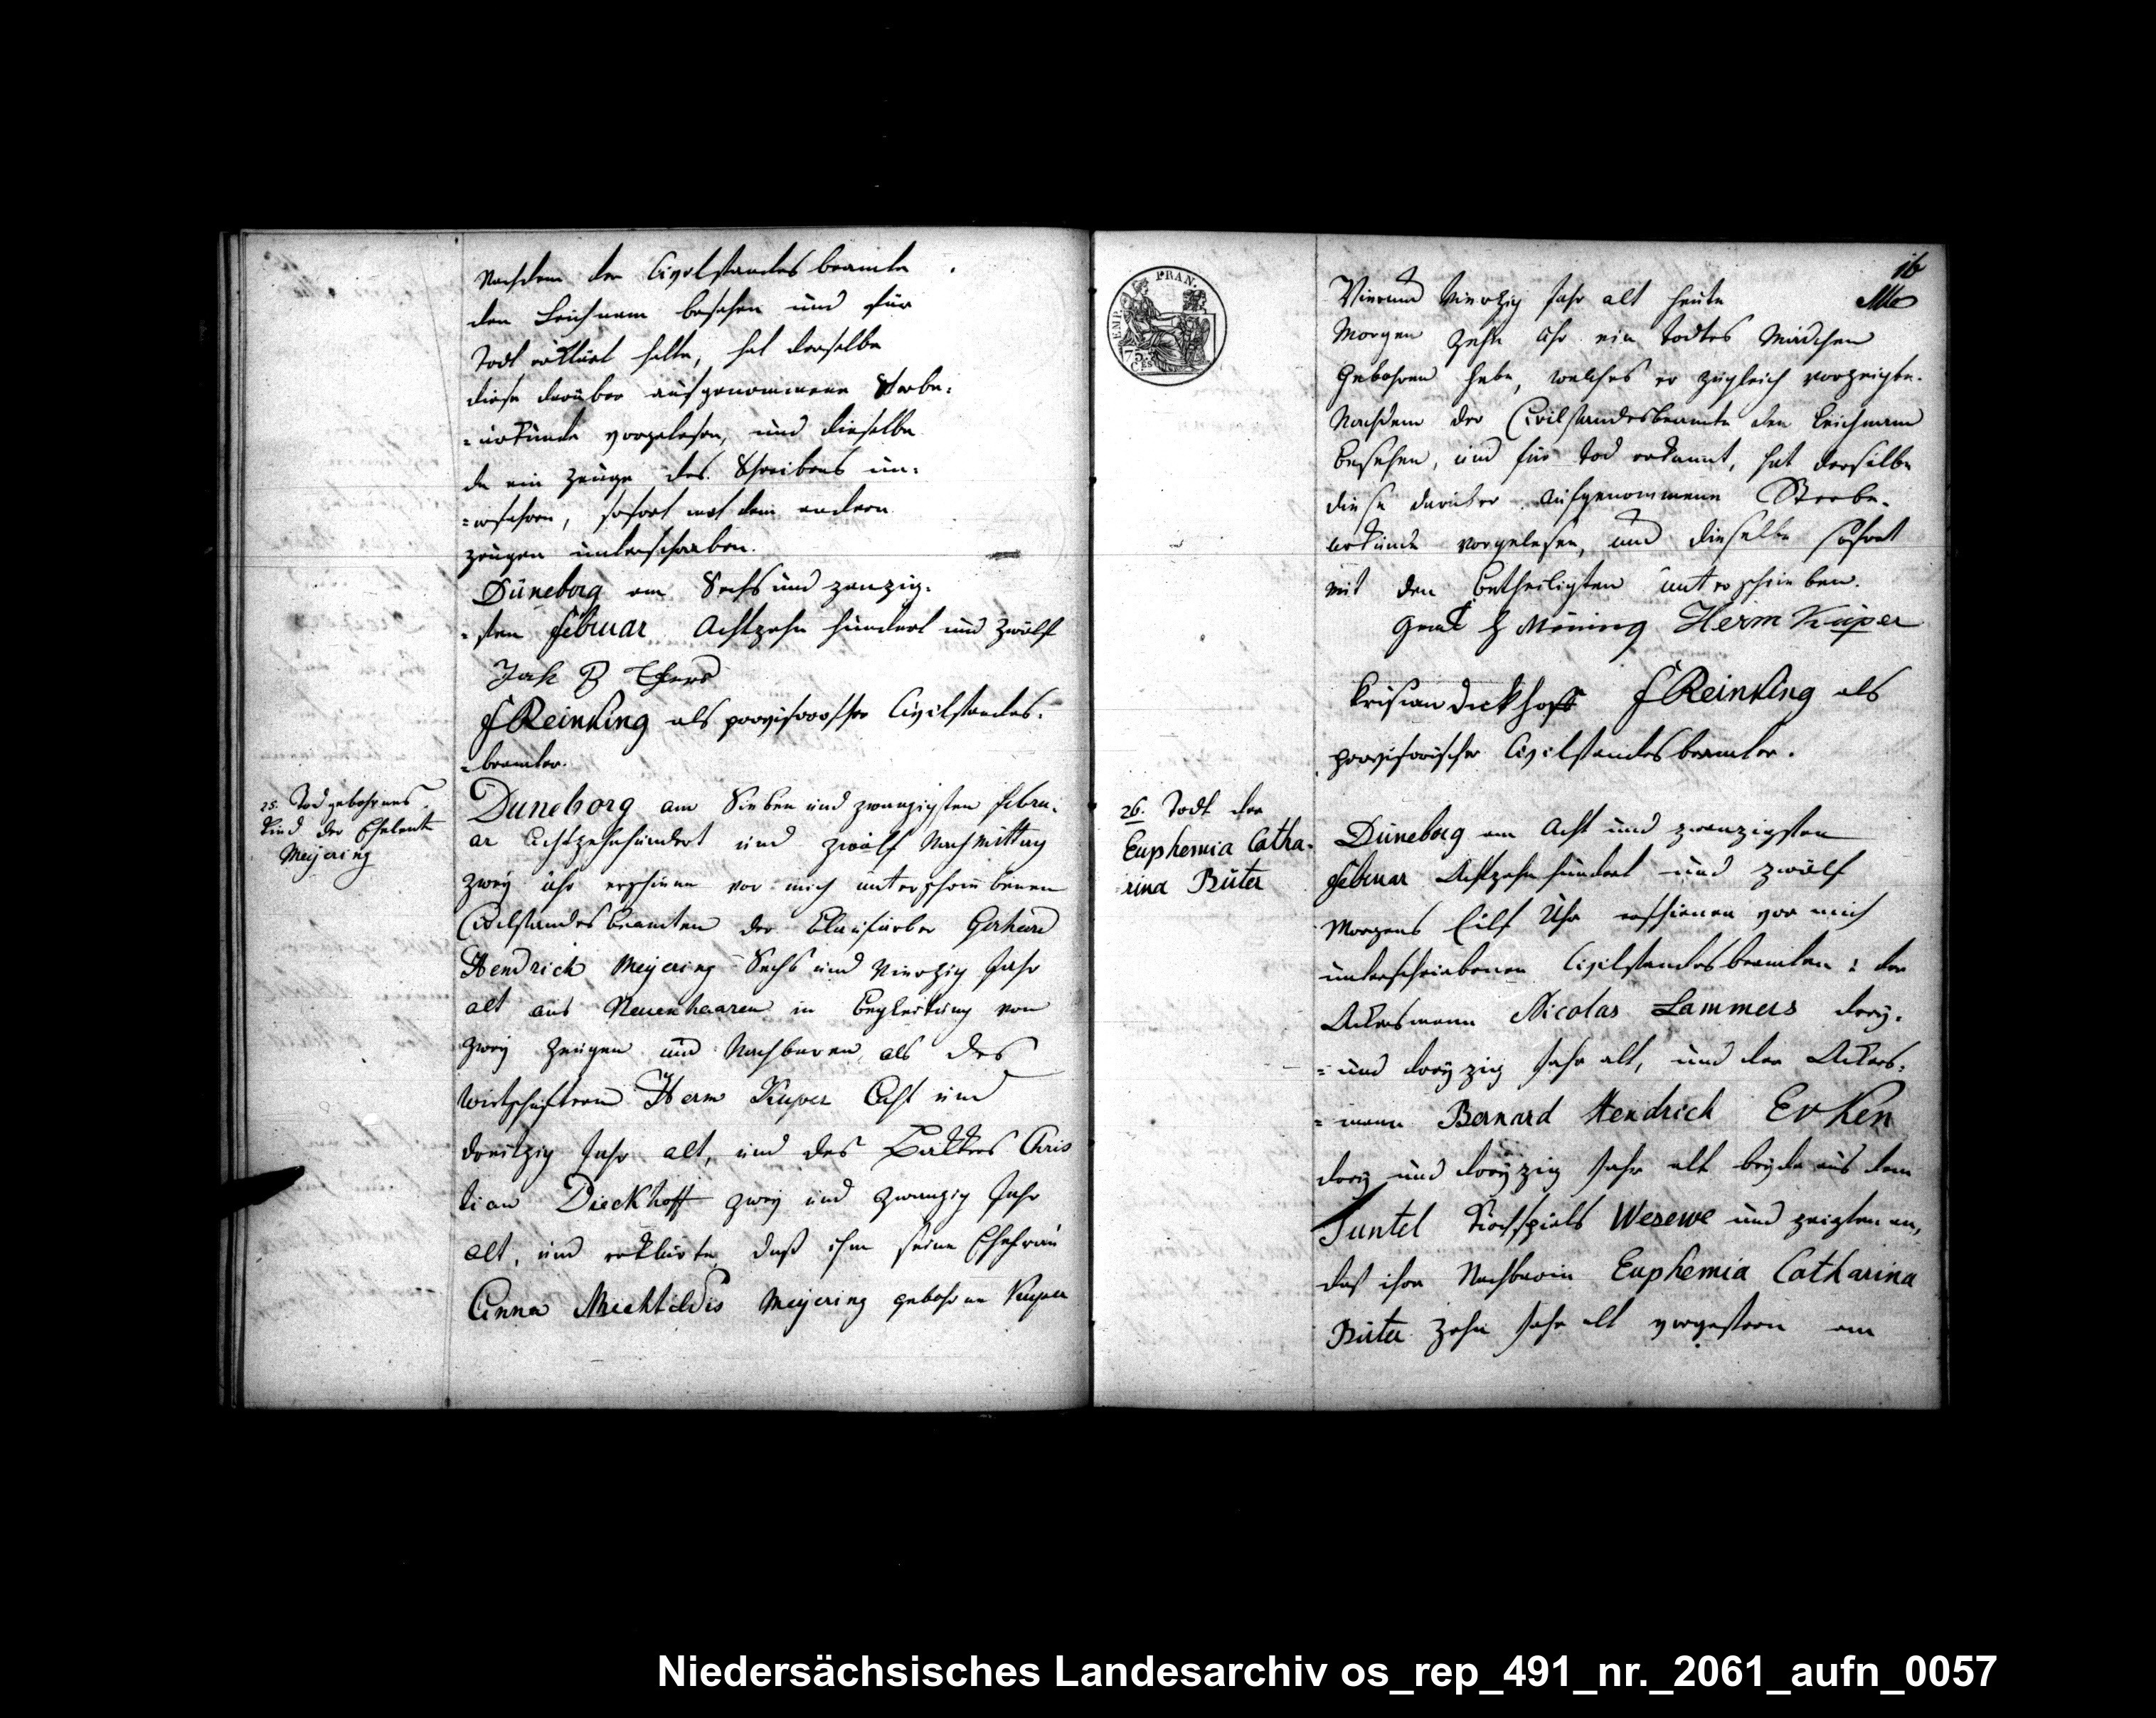 Nachdem der Civilstandesbeamte
den Leichnam besehen und für
Todt erklärt hatte, hat derselbe
diese darüber aufgenommene Sterbe:
=urkunde vorgelesen, und dieselbe
da ein Zeuge des Schreibens un:
=erfahren, sofort mit dem andern
zeugen unterschrieben.
Düneborg am Sechs und zanzig:
=sten Februar Achtzehn hundert und Zwölf
Jak B
F Reinking als provisorischer Civilstandes:
=beamter.
25. Tod gebohrnes
Kind der Eheleute
Meijering
Duneborg am Sieben und zwanzigsten Febru.
ar Achtzehnhundert und zwölf Nachmittag
zweÿ Uhr erschiene vor mich unterschriebenen
Civilstandesbeamten der Blaufärber Gerhard
Hendrich Meijering Sechs und Vierzig Jahr
alt aus Neuenhaaren in Begleitung von
zweÿ Zeugen und Nachbaren, als des
Wirthschafters Herm Kuper Acht und
dreitzig Jahr alt, und des Chris
tian Dieckhoff zweÿ und zwanzig Jahr
alt, und erklärte daß ihm seine Ehefrau
Anna Mechtildis Meijering gebohrne Kuper
16
EMP. FRAN.
75
Cen
Vierund Vierzig Jahr alt heute
Morgen Zehn Uhr ein todtes Mädchen
Gebohren habe, welches er zugleich vorzeigte.
Nachdem der Civilstandesbeamte den Leichnam
besehen, und für Tod erkannt, hat derselbe
diese darüber aufgenommene Sterbe-
urkunde vorgelesen, und dieselbe sofort
mit den Betheiligten unterschrieben.
H Herm Küper
Krisian Dickhoff F Reinking als
provisorischer Civilstandesbeamter.
26. Todt der
Euphemia Catha-
rina Büter
Düneborg am Acht und zwanzigsten
Februar Achtzehn hundert und zwölf
Morgens Eilf Uhr erschienen vor mich
unterschriebenen Civilstandesbeamten: der
Ackersmann Nicolas Lammers dreÿ:
=und dreÿzig Jahr alt, und der Ackers:
=mann Bernard Hendrich Erken
dreÿ und dreÿzig Jahr alt beÿde aus dem
Tuntel Kirchspiels Wesewe und zeigten an,
daß ihre Nachbarin Euphemia Catharina
Büter Zehn Jahr alt vorgestern am
Niedersächsisches Landesarchiv os_rep_491_nr._2061_aufn_0057